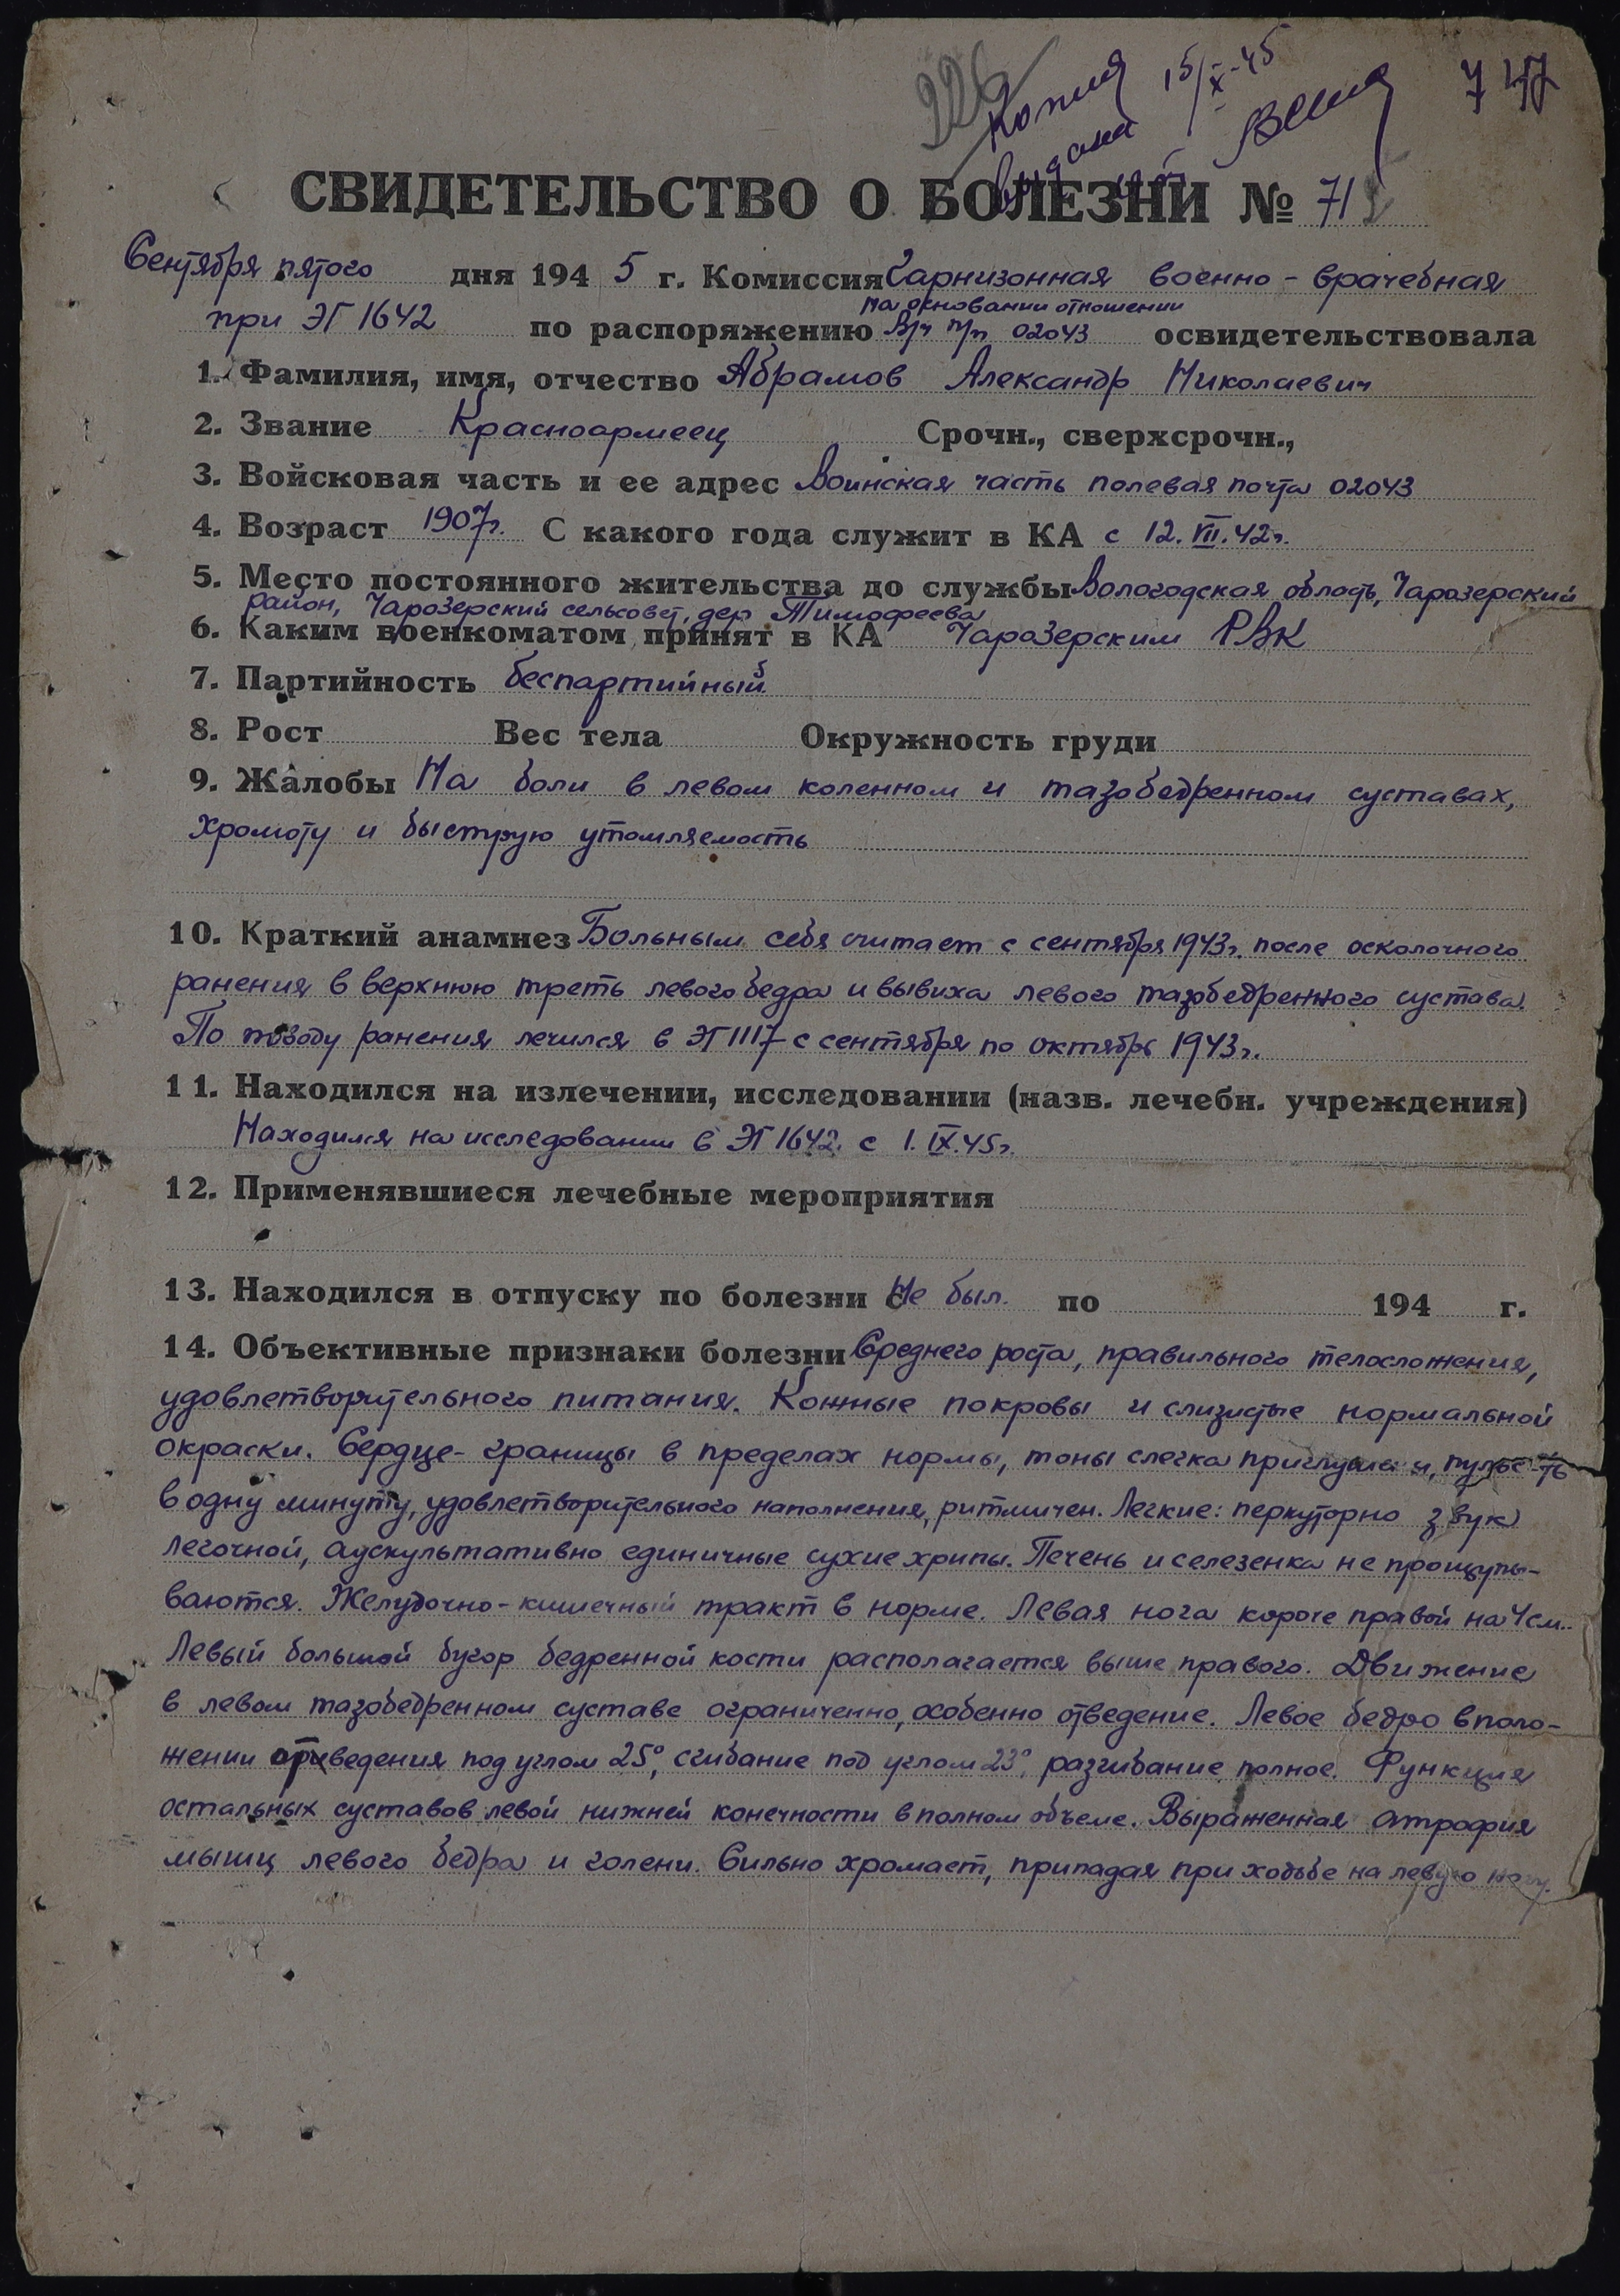 226
Копия 15/X-45
выдана
7 47
СВИДЕТЕЛЬСТВО О БОЛЕЗНИ № 71
Сентября пятого дня 1945 г. Комиссия Гарнизонная военно-врачебная
на основании отношении
при ЭГ 1642 по распоряжению В/ч п/п 02043 освидетельствовала
1. Фамилия, имя, отчество Абрамов Александр Николаевич
2. Звание Красноармеец Срочн., сверхсрочн.,
3. Войсковая часть и ее адрес Воинская часть полевая почта 02043
4. Возраст 1907г. С какого года служит в КА с 12.VII.42г.
5. Место постоянного жительства до службы Вологодская область, Чарозерский
район, Чарозерский сельсовет, дер Тимофеева
6. Каким военкоматом принят в КА Чарозерским РВК
7. Партийность беспартийный
8. Рост Вес тела Окружность груди
9. Жалобы На боли в левом коленном и тазобедренном суставах,
хромоту и быструю утомляемость
10. Краткий анамнез Больным себя считает с сентября 1943г. после осколочного
ранения в верхнюю треть левого бедра и вывиха левого тазобедренного сустава.
По поводу ранения лечился в ЭГ 1117 с сентября по октябрь 1943г.
11. Находился на излечении, исследовании (назв. лечебн. учреждения)
Находился на исследовании в ЭГ 1642 с 1.IX.45г.
12. Применявшиеся лечебные мероприятия
13. Находился в отпуску по болезни с Не был. по 194 г.
14. Объективные признаки болезни Среднего роста, правильного телосложения,
удовлетворительного питания. Кожные покровы и слизистые нормальной
окраски. Сердце - границы в пределах нормы, тоны слегка приглушены, пульс 76
в одну минуту, удовлетворительного наполнения, ритмичен. Легкие: перкуторно звук
легочной, аускультативно единичные сухие хрипы. Печень и селезенка не прощупы-
ваются. Желудочно-кишечный тракт в норме. Левая нога короче правой на 4см.
Левый большой бугор бедренной кости располагается выше правого. Движение
в левом тазобедренном суставе ограниченно, особенно отведение. Левое бедро в поло-
жении приведения под углом 25°, сгибание под углом 23°, разгибание полное. Функция
остальных суставов левой нижней конечности в полном объеме. Выраженная атрофия
мышц левого бедра и голени. Сильно хромает, припадая при ходьбе на левую ногу.